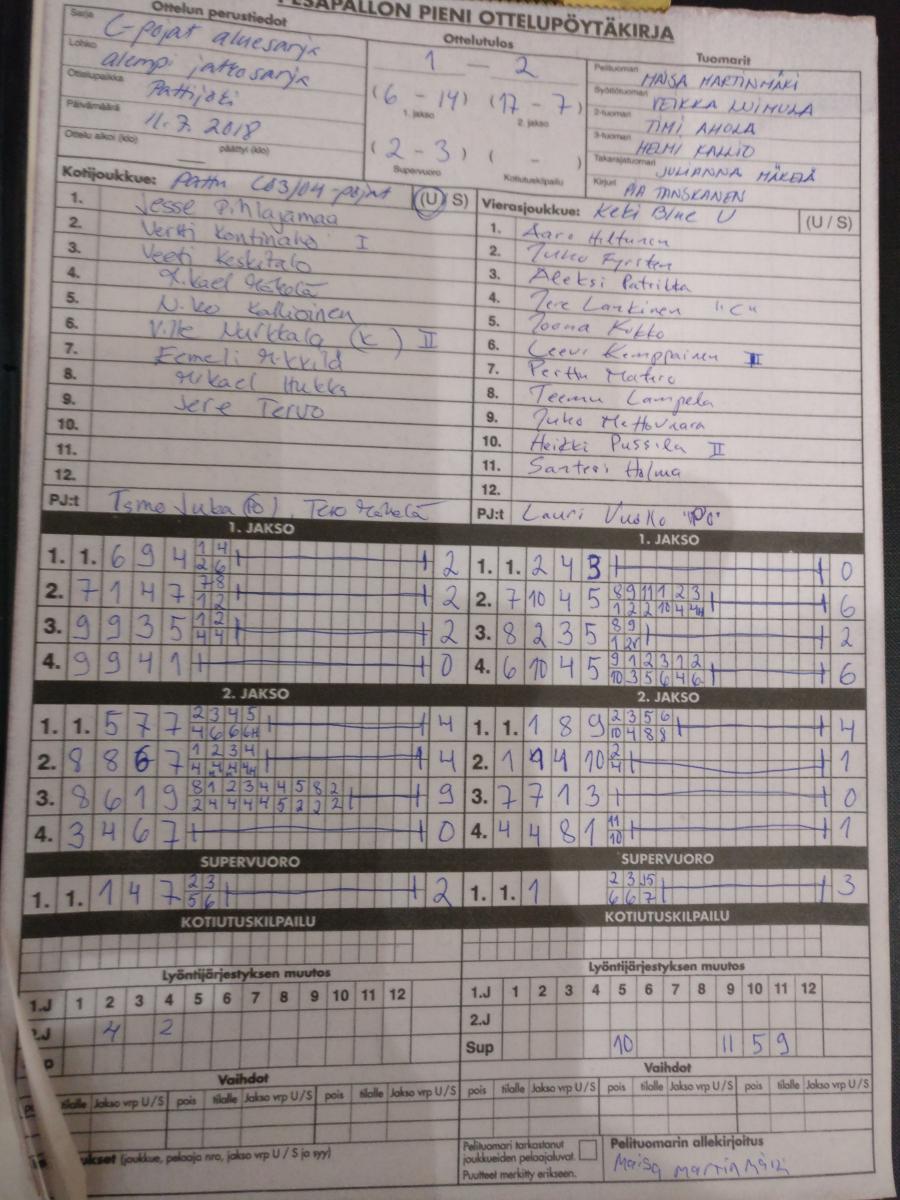 PESÄPALLON PIENI OTTELUPÖYTÄKIRJA
Ottelun perustiedot
Sarja C-pojat aluesarja
Lohko alempi jatkosarja
Ottelupaikka Pattijoki
Päivämäärä 11.7.2018
Ottelu alkoi (klo) päättyi (klo)
Ottelutulos
1 — 2
(6 - 14) (17 - 7)
1. jakso 2. jakso
(2 - 3) ( - )
Supervuoro Kotiutuskilpailu
Tuomarit
Pelituomari MAISA MARTINMÄKI
Syöttötuomari VEIKKA LUIMULA
2-tuomari TIMI AHOLA
3-tuomari HELMI KALLIO
Takarajatuomari JULIANNA MÄKELÄ
Kirjuri PIA TANSKANEN
Kotijoukkue: Pattu C03/04-pojat (U / S)
1. Jesse Pihlajamaa
2. Vertti Kontinaho I
3. Veeti Keskitalo
4. Mikael Mäkelä
5. Niko Kallioinen
6. Ville Nurkkala (K) II
7. Eemeli Mikkilä
8. Mikael Hukka
9. Jere Tervo
10.
11.
12.
PJ:t Ismo Juka (PO), Tero Mäkelä
Vierasjoukkue: KeKi Blue U (U / S)
1. Aaro Hiltunen
2. Juho Fyrsten
3. Aleksi Patrikka
4. Jere Lankinen "C"
5. Joona Kukko
6. Leevi Kemppainen II
7. Perttu Matero
8. Teemu Lampela
9. Juho Mattovaara
10. Heikki Pussila II
11. Santeri Holma
12.
PJ:t Lauri Vuokko "PO"
1. JAKSO
1. 1. 6 9 4 1 4 2
2 6
2. 7 1 4 7 7 8 2
1 2
3. 9 9 3 5 1 2 2
4 4
4. 9 9 4 1 0
1. JAKSO
1. 1. 2 4 3 0
2. 7 10 4 5 8 9 11 1 2 3 6
1 2 2 10 4 4H
3. 8 2 3 5 8 9 2
1 2r
4. 6 10 4 5 9 1 2 3 1 2 6
10 3 5 6 4 6
2. JAKSO
1. 1. 5 7 7 2 3 4 5 4
4 6 6 6H
2. 8 8 6 7 1 2 3 4 4
4 4 4 4H
3. 8 6 1 9 8 1 2 3 4 4 5 8 2 9
2 4 4 4 4 5 2 2 2
4. 3 4 6 7 0
2. JAKSO
1. 1. 1 8 9 2 3 5 6 4
10 4 8 8
2. 1 4 10 2 1
4
3. 7 7 1 3 0
4. 4 4 8 1 11 1
10
SUPERVUORO
1. 1. 1 4 7 2 3 2
5 6
SUPERVUORO
1. 1. 1 2 3 15 3
6 6 7
KOTIUTUSKILPAILU
KOTIUTUSKILPAILU
Lyöntijärjestyksen muutos
1.J 1 2 3 4 5 6 7 8 9 10 11 12
2.J 4 2
p
Lyöntijärjestyksen muutos
1.J 1 2 3 4 5 6 7 8 9 10 11 12
2.J
Sup 10 11 5 9
Vaihdot
tilalle Jakso vrp U/S pois tilalle Jakso vrp U/S pois tilalle Jakso vrp U/S
Vaihdot
pois tilalle Jakso vrp U/S pois tilalle Jakso vrp U/S
ukset (joukkue, pelaaja nro, jakso vrp U/S ja syy)
Pelituomari tarkastanut
joukkueiden pelaajaluvat.
Puutteet merkitty erikseen.
Pelituomarin allekirjoitus
Maisa Martinmäki